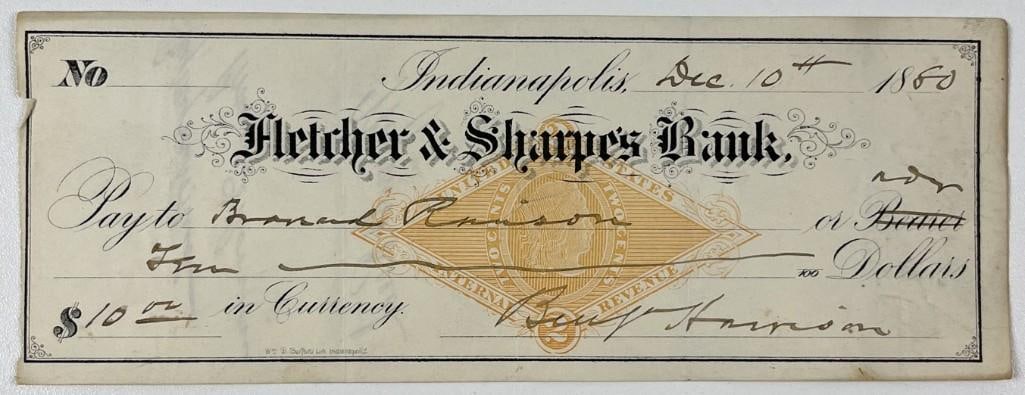 No Indianapolis, Dec. 10th 1880
Fletcher & Sharpe's Bank,
odr
Pay to Ramison or Bearer
Ten 100 Dollars
$ 10 00 in Currency. Benj Harrison
UNITED STATES
TWO CENTS TWO CENTS
INTERNAL REVENUE
2
Wm. B. Burford Lith. Indianapolis